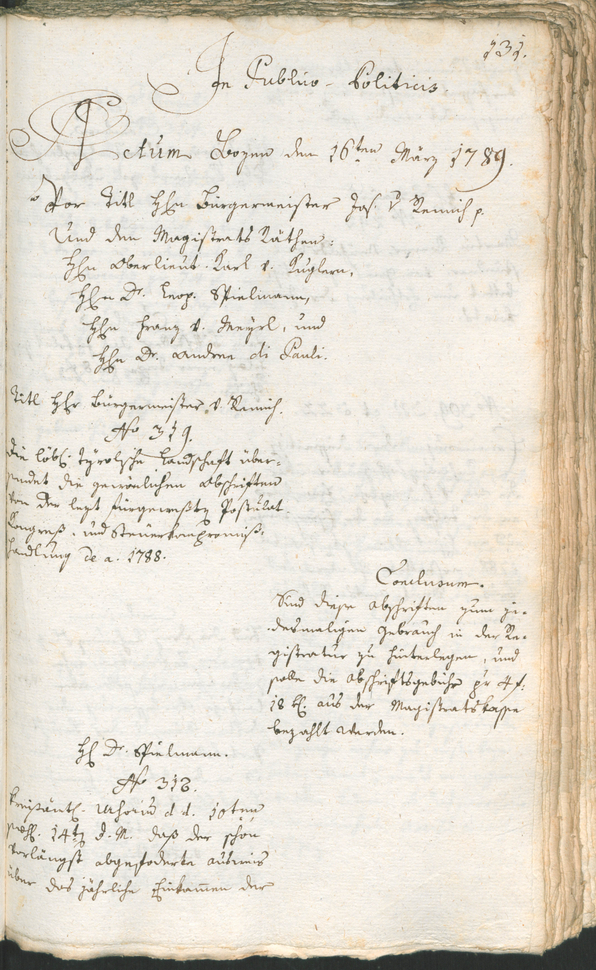 131.
In Publico-Politicis.
Actum Bozen den 16ten März 1789.
Vor Titl Hhn Bürgermeister Jos. v Remich p.
Und den Magistrats Räthen:
Hhn Oberlieut. Karl v. Kuglern,
Hhn Dr. Leop. Spielmann,
Hhn Franz v. Meyrl, und
Hhn Dr. Andree di Pauli.
Titl Hhr Bürgermeister v. Remich.
No 319.
Die löbl. tyrolsche Landschaft über-
sendet die gewönlichen Abschriften
von der lezt fürgewesten Postulat-
Congreß, und Steuerkompromiß-
handlung de a. 1788.
Conclusum.
Sind diese Abschriften zum je-
desmaligen Gebrauch in der Re-
gistratur zu hinterlegen, und
solle die Abschriftsgebühr pr 4 f.
18 kr. aus der Magistratskasse
bezahlt werden.
Hh Dr. Spielmann.
No 312.
Kreisämtl. d. d. 10ten
14ten d. M. daß der schon
vorlängst abgeforderte Ausweis
über das jährliche Einkommen der